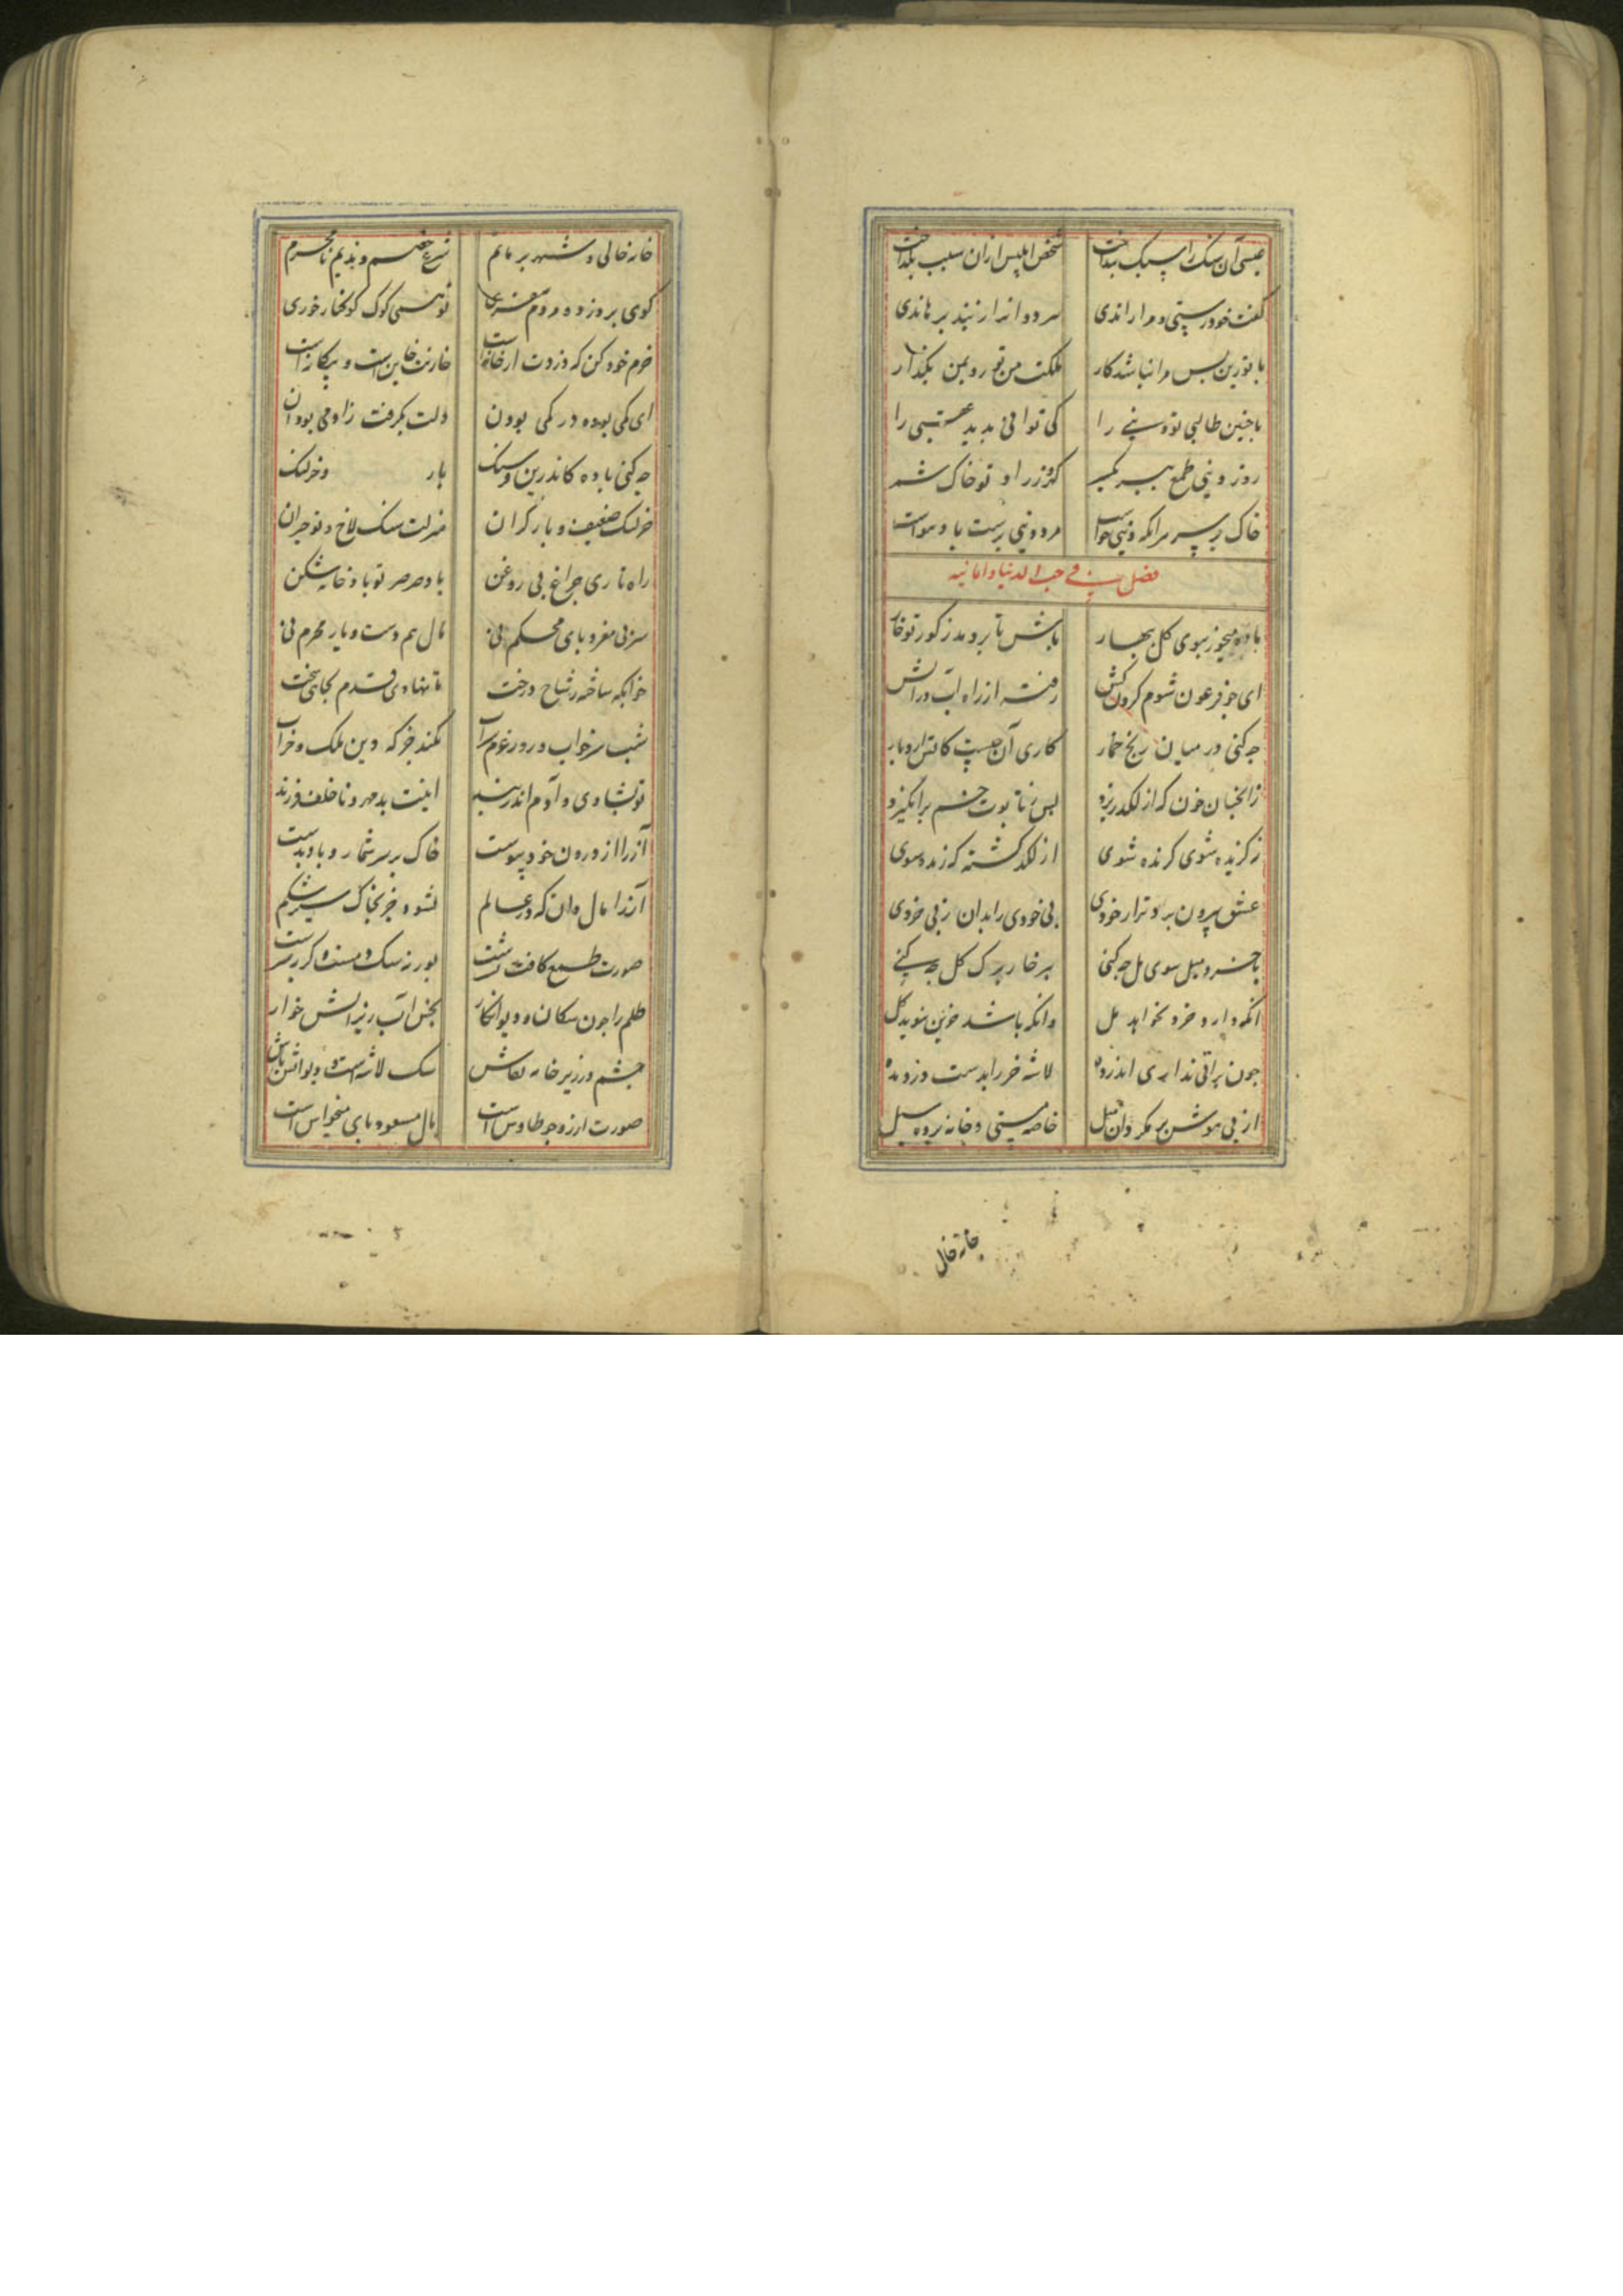 عیسی آن سنک را سبک بنداخت شخص ابلیس ازان سبب بکداخت
کفت خود رستی و مرا راندی هر دوانرا ز بند برهاندی
با تو زین بس مرا نباشد کار ملکت من تو رو بمن بکذار
با جنین طالبی تو دنیی را کی توانی بدید عقبی را
روز دنیی طمع ببر یکسر کو زر او تو خاک شمر
خاک بر سر مرانکه دنیی خواست مرد دنیی برست باد هواست
فصل فی حب الدنیا و امانیه
باده میخور ببوی کل بهار باش تا بر دمد ز کور تو خار
ای جو فرعون شوم کردن کش رفته از راه آب در آتش
جه کنی در میان رنج خمار کاری آن جست کاتش ارد بار
زانجنان خون که از لکد ریزد بس ز تابوت خشم برانکیزد
ز کزیده شوی کزنده شوی از لکد کشته کی زنده شوی
عشق بیرون برد ترا ز خودی بی خودی را بدان ز بی خردی
با خرد میل سوی مل جه کنی بر خار برک کل جه کنی
انکه دارد خرد نخواهد مل وانکه باشد خزین نبوید کل
جون براقی نداری اندر ده لاشه خر را بدست دزد مده
از بی هوش بر مکردان مل خاصه مستی و خانه بر ره سیل
خانه خالی
خانه خالی و شهر بر ماتم شرع خصم و ندیم نامحرم
کوی بر دزد و مردم
خرم خود کن که دزدت از خانه است خازنت خاین است و بیکانه است
ای کمی بوده در کمی بودن دلت بکرفت زادمی بودن
جه کنی باده کاندرین فرسنک بار و خر لنک
خر لنک ضعیف و بار کران منزلت سنک لاخ و تو حیران
راه تاری جراغ بی روغن باد صرصر تو باد خانه شکن
سر بی مغز و بای محکم نی مال هم دست و یار محرم نی
خوابکه ساخته ز شاخ درخت تا نهادی قدم بجایی سخت
شب سر خواب و روز عزم شراب نکند جز که دین و ملک خراب
تو بشادی و آدم اندر بند اینت بد مهر و ناخلف فرزند
آز را از درون خود بیوست خاک بر سر شمار و باد بدست
آز را مال دان که در عالم نشود جز بخاک سیر شکم
صورت طمع کافت رشت بود
ظلم را جون سکان و دیو انکار بخش آب ریز اتش خوار
جشم در زیر خانه نقاش سک لاشه است و دیو اتش باش
صورت ارزو جو طاوس است بال مسعود و بای منحوس است